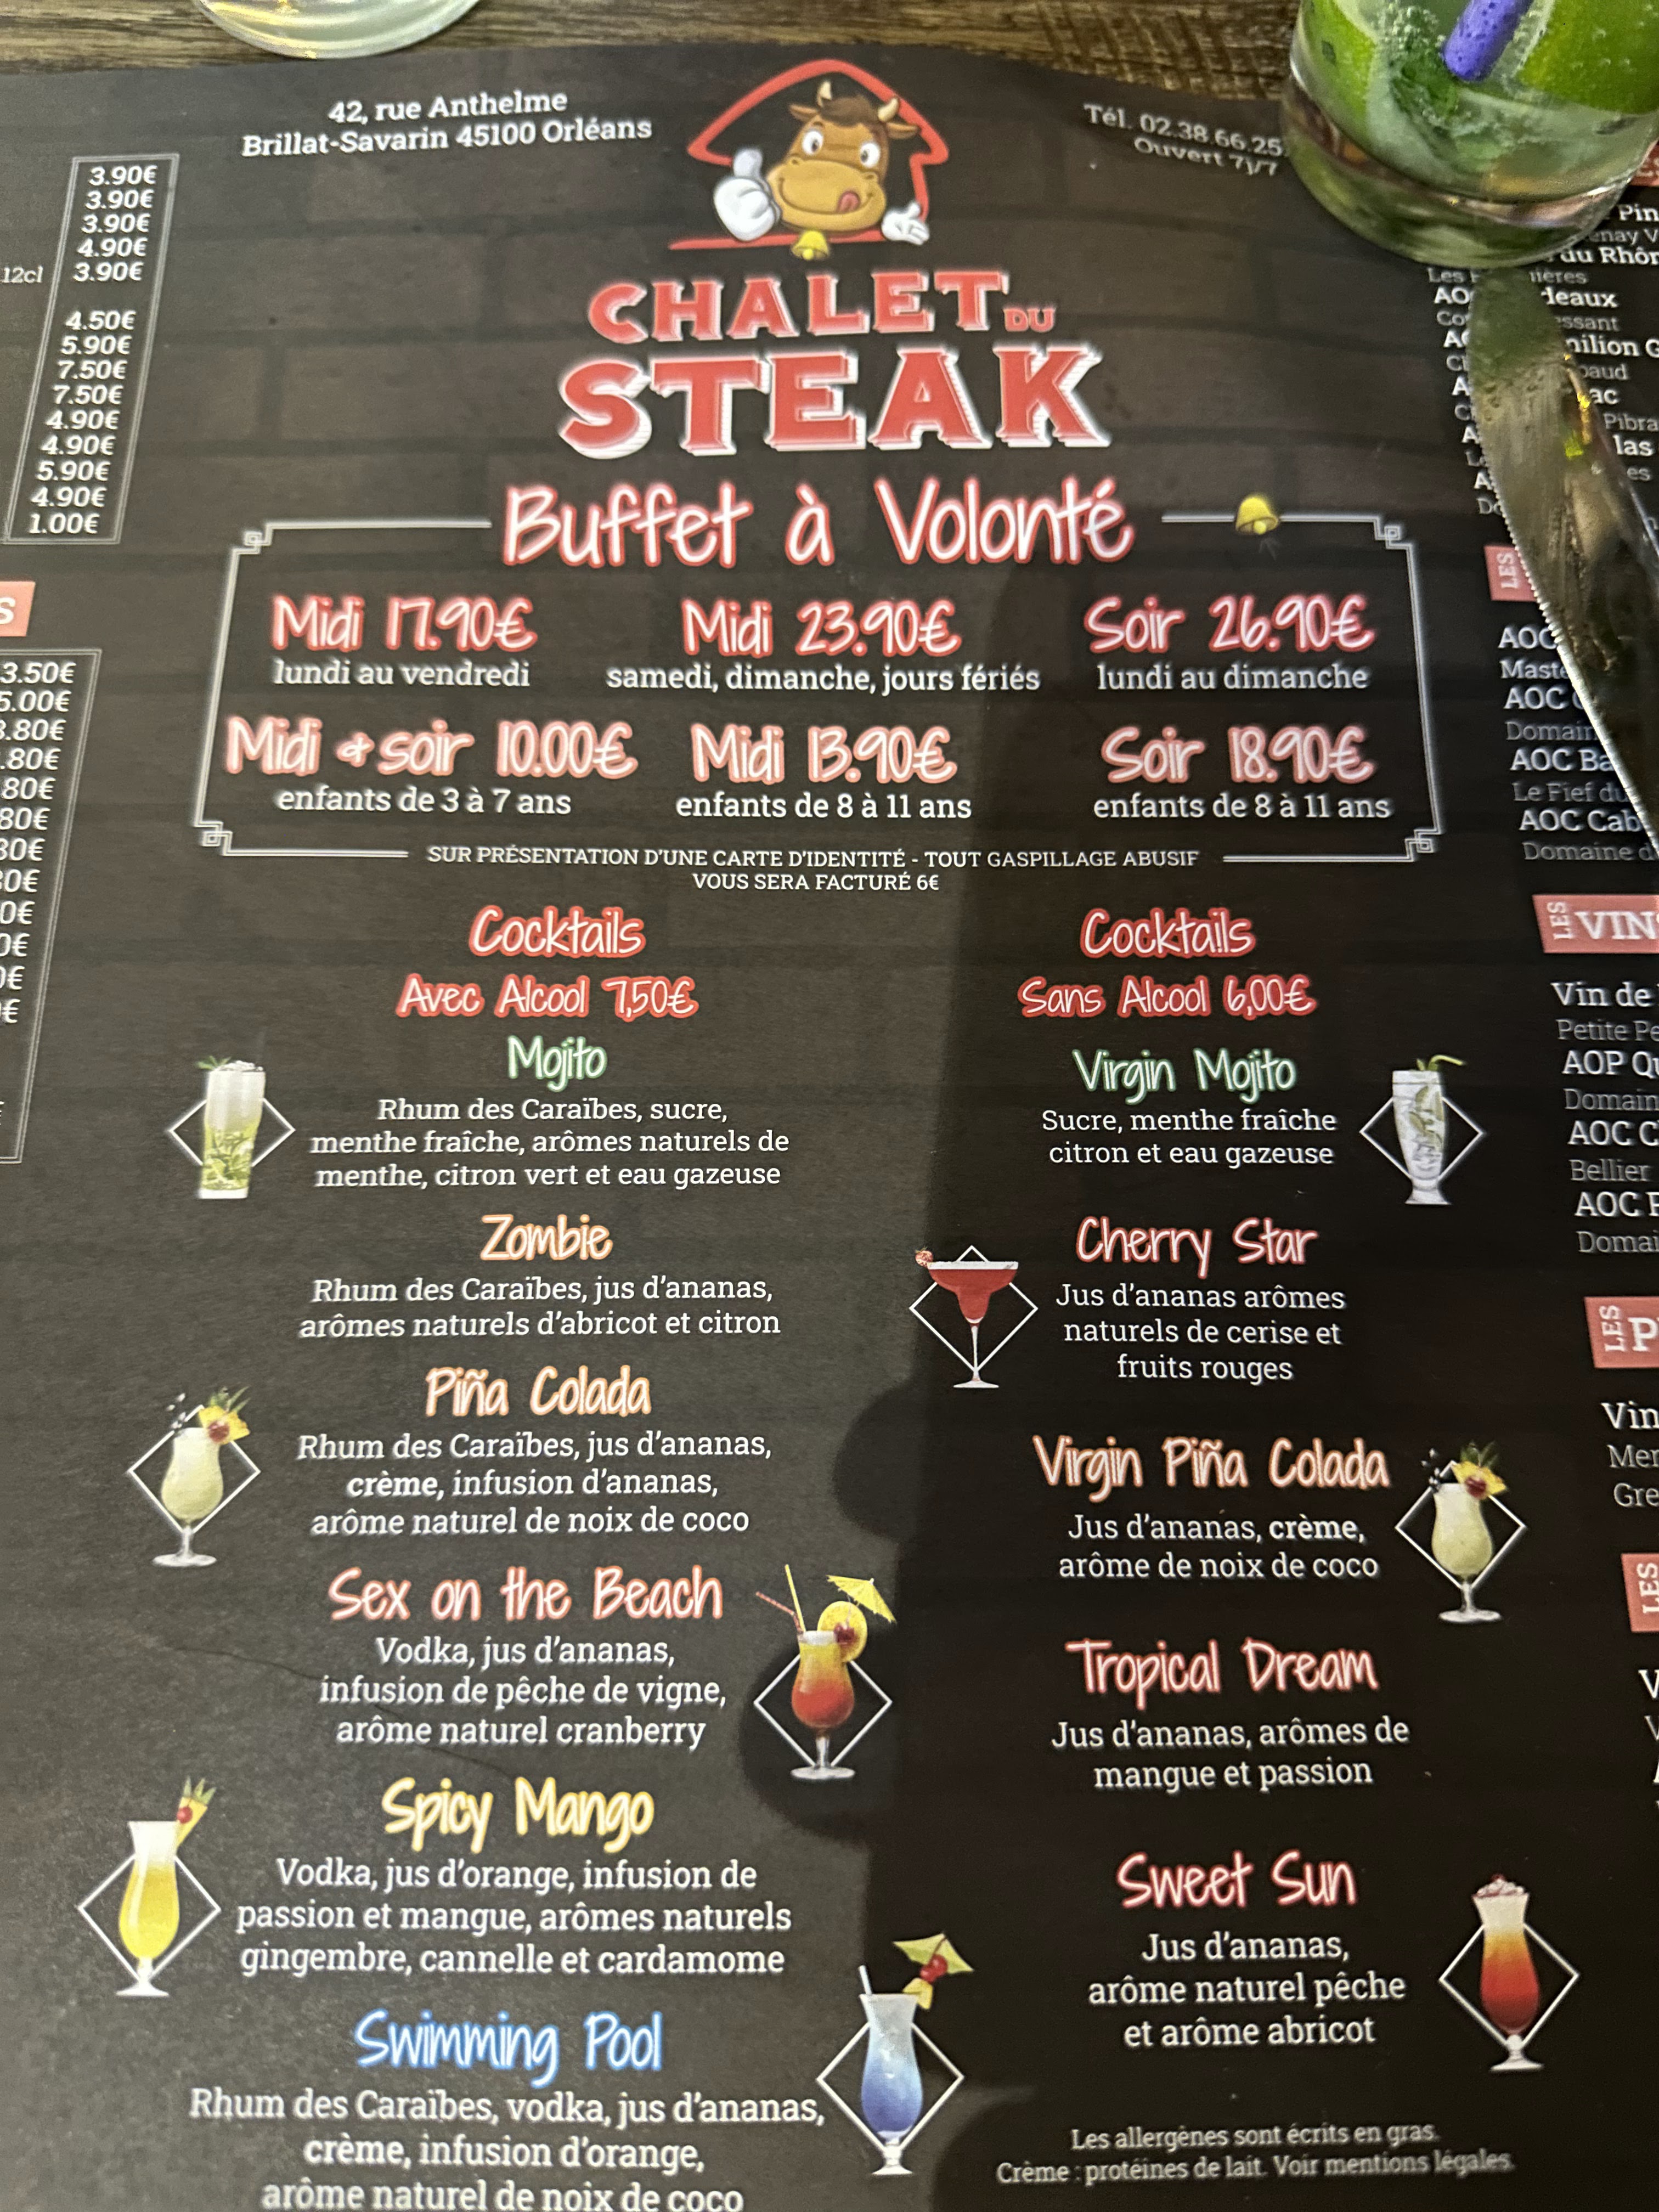 42, rue Anthelme
Brillat-Savarin 45100 Orléans
Tél. 02.38.66.25.
Ouvert 7j/7
CHALET DU
STEAK
Buffet à Volonté
Midi 17.90€
lundi au vendredi
Midi 23.90€
samedi, dimanche, jours fériés
Soir 26.90€
lundi au dimanche
Midi & soir 10.00€
enfants de 3 à 7 ans
Midi 13.90€
enfants de 8 à 11 ans
Soir 18.90€
enfants de 8 à 11 ans
SUR PRÉSENTATION D'UNE CARTE D'IDENTITÉ - TOUT GASPILLAGE ABUSIF
VOUS SERA FACTURÉ 6€
Cocktails
Avec Alcool 7,50€
Mojito
Rhum des Caraïbes, sucre,
menthe fraîche, arômes naturels de
menthe, citron vert et eau gazeuse
Zombie
Rhum des Caraïbes, jus d'ananas,
arômes naturels d'abricot et citron
Piña Colada
Rhum des Caraïbes, jus d'ananas,
crème, infusion d'ananas,
arôme naturel de noix de coco
Sex on the Beach
Vodka, jus d'ananas,
infusion de pêche de vigne,
arôme naturel cranberry
Spicy Mango
Vodka, jus d'orange, infusion de
passion et mangue, arômes naturels
gingembre, cannelle et cardamome
Swimming Pool
Rhum des Caraïbes, vodka, jus d'ananas,
crème, infusion d'orange,
arôme naturel de noix de coco
Cocktails
Sans Alcool 6,00€
Virgin Mojito
Sucre, menthe fraîche
citron et eau gazeuse
Cherry Star
Jus d'ananas arômes
naturels de cerise et
fruits rouges
Virgin Piña Colada
Jus d'ananas, crème,
arôme de noix de coco
Tropical Dream
Jus d'ananas, arômes de
mangue et passion
Sweet Sun
Jus d'ananas,
arôme naturel pêche
et arôme abricot
Les allergènes sont écrits en gras.
Crème : protéines de lait. Voir mentions légales.
3.90€
3.90€
3.90€
4.90€
12cl 3.90€
4.50€
5.90€
7.50€
7.50€
4.90€
4.90€
5.90€
4.90€
1.00€
3.50€
5.00€
.80€
.80€
80€
80€
du Rhôn
LES
AOC
AOC
Domain
AOC Ba
Le Fief du
AOC Cab
Domaine d
LES VINS
Vin de
Petite Pe
AOP Qu
Domain
AOC C
Bellier
AOC
Domai
LES P
Vin
Mer
Gre
LES